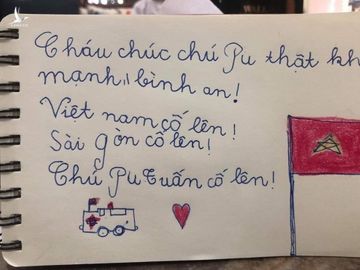 Cháu chúc chú Pu thật kh
mạnh, bình an!
Việt nam cố lên!
Sài gòn cố lên!
Chú Pu Tuấn cố lên!